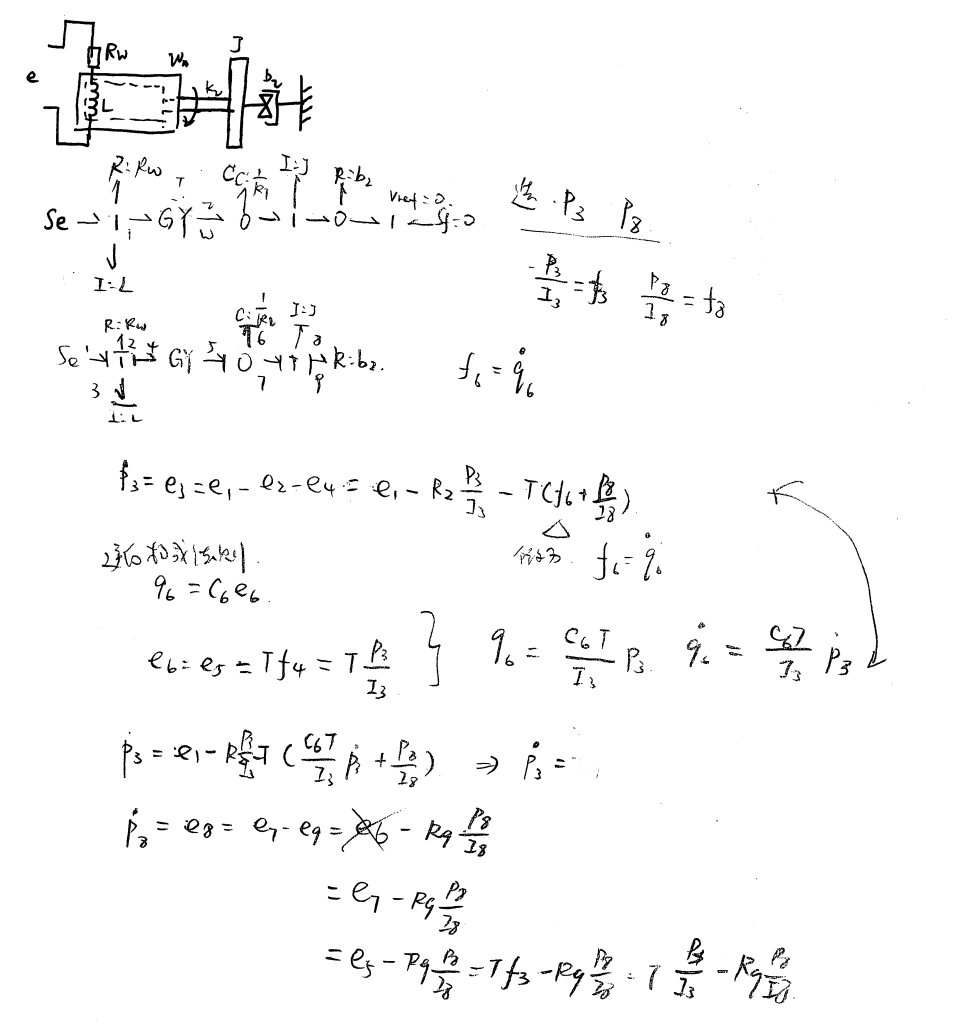 Rw Wn J
e L k₂ b₂
R:Rw T C:1/k₁ I:J R:b₂ Vref=0
Se → 1 → GY → 0 → 1 → 0 → 1 ← Sf=0
I:L
选 P₃ P₈
P₃/I₃ = f₃ P₈/I₈ = f₈
R:Rw C:1/k₂ I:J
Se 1 2 4 GY 5 0 6 7 1 8 9 R:b₂
3 I:L
f₆ = q̇₆
ṗ₃ = e₃ = e₁ - e₂ - e₄ = e₁ - R₂ P₃/I₃ - T(f₆ + P₈/I₈)
f₆ = q̇₆
q₆ = C₆e₆
e₆ = e₅ = Tf₄ = T P₃/I₃ } q₆ = C₆T/I₃ P₃ q̇₆ = C₆T/I₃ ṗ₃
ṗ₃ = e₁ - R P₃/I₃ - T (C₆T/I₃ ṗ₃ + P₈/I₈) ⇒ ṗ₃ =
ṗ₈ = e₈ = e₇ - e₉ = e₆ - R₉ P₈/I₈
= e₇ - R₉ P₈/I₈
= e₅ - R₉ P₈/I₈ = Tf₃ - R₉ P₈/I₈ = T P₃/I₃ - R₉ P₈/I₈